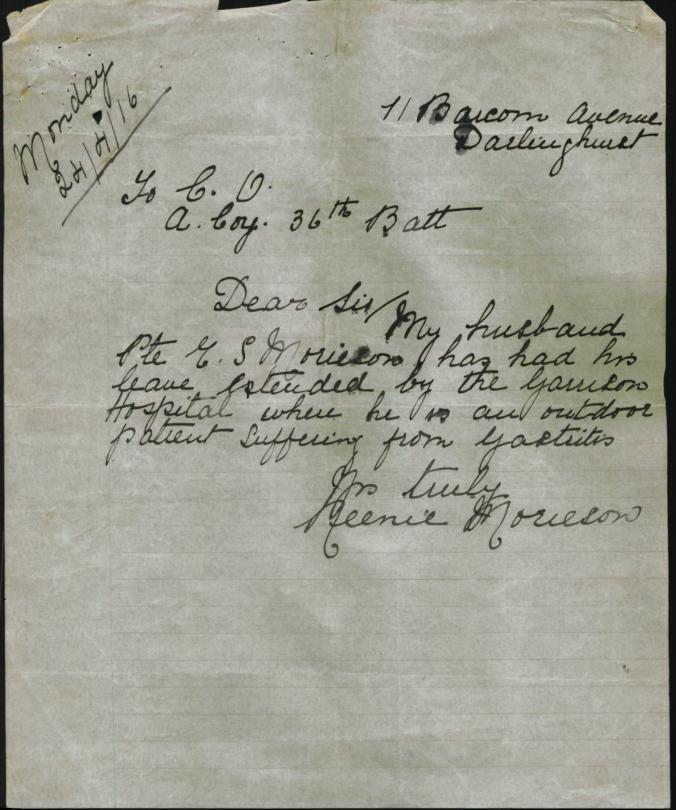 Monday
24/4/16
11 Barcom Avenue
Darlinghurst
To C. O.
A. Coy. 36th Batt
Dear Sir/
My husband
Pte E. S Morieson has had his
leave extended by the Garrison
Hospital where he is an outdoor
patient suffering from Gastritis
Yrs truly
Morieson